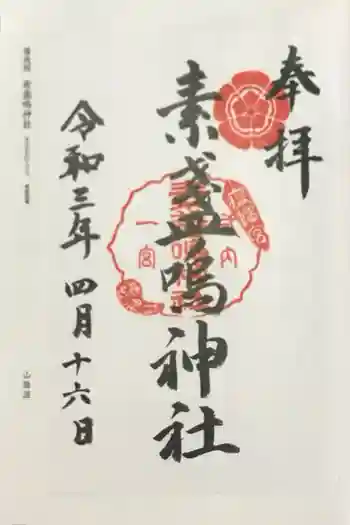 奉拝
素盞嗚神社
令和三年 四月十六日
一宮